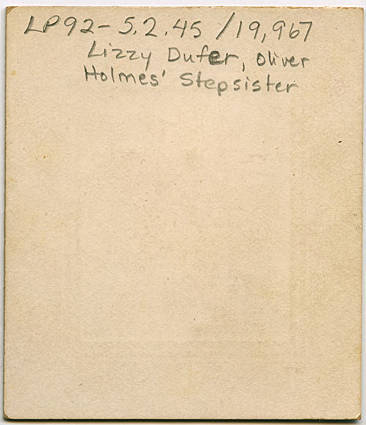 LP92-5.2.45 /19,967
Lizzy Dufer, Oliver
Holmes' Stepsister